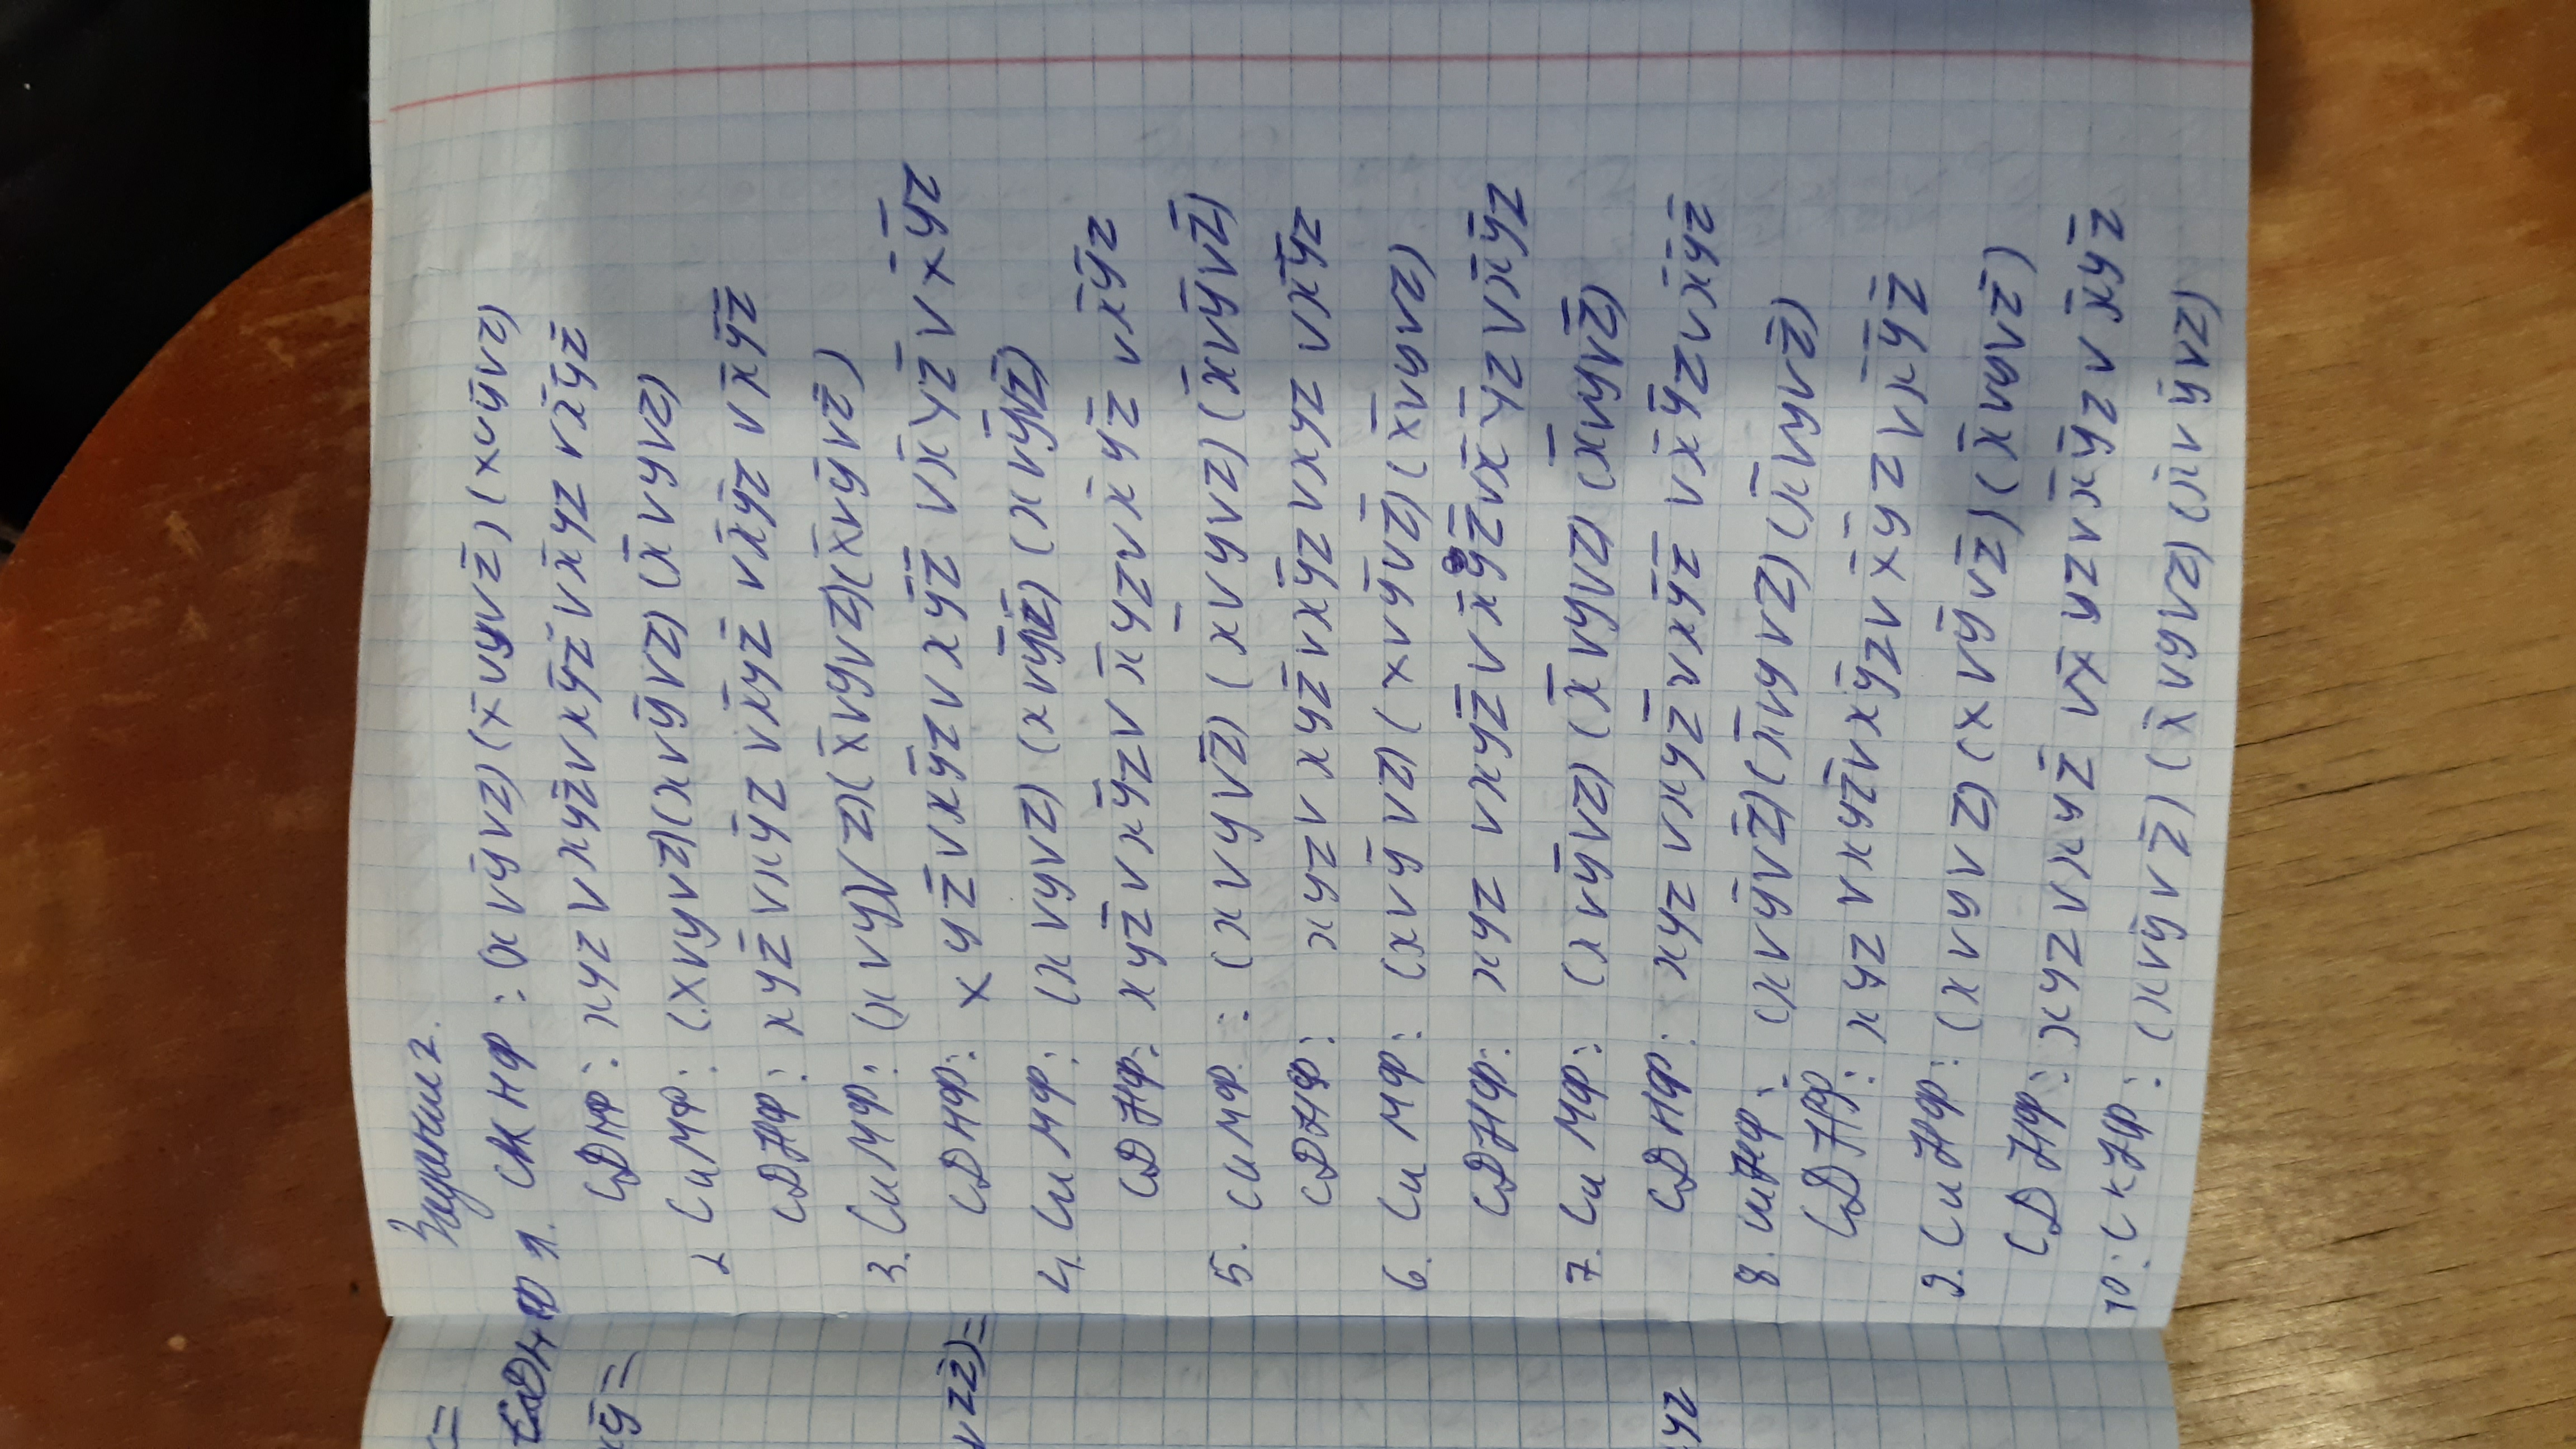 =
СДНФ
xȳ=
vzz̄)=
yz
Задание 2.
1. СКНФ: (x∨ȳ∨z)(x̄∨y∨z̄)(x∨ȳ∨z)
СДНФ: xyz∨xyz̄∨xȳz̄∨x̄yz∨x̄ȳz̄
2 СкНФ: (x∨y∨z)(x∨ȳ∨z)(x̄∨y∨z)
СДНФ: xyz̄∨xȳz∨x̄yz̄∨x̄ȳz∨x̄ȳz̄
3. СкНФ: (x∨y∨z)(x̄∨y∨z)(x̄∨ȳ∨z̄)
СДНФ: xyz̄∨xȳz∨xȳz̄∨x̄yz̄∨x̄ȳz
4. СкНФ: (x∨y∨z)(x∨ȳ∨z̄)(x∨ȳ∨z̄)
СДНФ: xyz̄∨xȳz∨x̄yz∨x̄yz̄∨x̄ȳz
5. СкНФ: (x∨y∨z̄)(x̄∨y∨z)(x̄∨ȳ∨z̄)
СДНФ: xyz∨xyz̄∨xȳz∨xyz∨x̄ȳz
6. СкНФ: (x∨ȳ∨z)(x∨ȳ∨z̄)(x̄∨y∨z)
СДНФ: xyz∨xyz̄∨x̄ z̄∨x̄ȳz∨x̄ȳz
7. СкНФ: (x∨ȳ∨z)(x̄∨y∨z)(x̄∨y∨z̄)
СДНФ: xyz∨xyz̄∨xȳz̄∨x̄ȳz∨x̄ȳz̄
8. СкНФ: (x∨ȳ∨z̄)(x̄∨y∨z)(x̄∨y∨z̄)
СДНФ: xyz∨xyz̄∨xȳz∨x̄ȳz∨x̄ȳz̄
9. СкНФ: (x∨y∨z)(x∨ȳ∨z̄)(x̄∨y∨z̄)
СДНФ: xyz∨xyz̄∨x̄yz∨x̄ȳz∨x̄yz̄
10. СкНФ: (x∨ȳ∨z̄)(x̄∨y∨z)(x̄∨ȳ∨z)